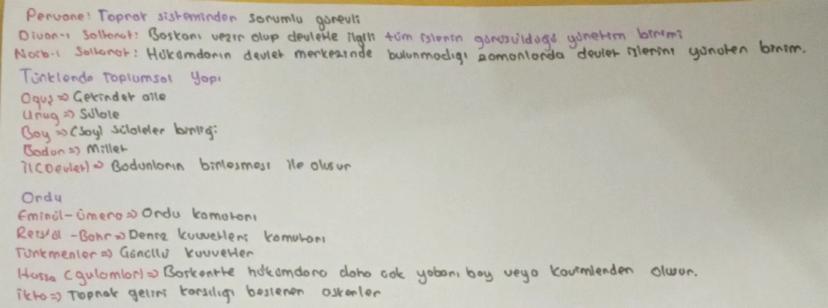 Pervane: Toprak sisteminden sorumlu görevli
Divan-ı Saltanat: Başkanı vezir olup devletle ilgili tüm işlerin görüşüldüğü yönetim birimi
Naib-i Saltanat: Hükümdarın devlet merkezinde bulunmadığı zamanlarda devlet işlerini yürüten birim.
Türklerde Toplumsal Yapı
Oguş => Çekirdek aile
Urug => Sülale
Boy => (Soy) Sülaleler birliği
Bodun => Millet
İl (Devlet) => Bodunların birleşmesi ile oluşur
Ordu
Emirül-ümera => Ordu komutanı
Reisül-Bahr => Deniz kuvvetleri komutanı
Türkmenler => Gönüllü kuvvetler
Hassa (gulamlar) => Başkentte hükümdara daha çok yabancı boy veya kavimlerden oluşur.
İkta => Toprak geliri karşılığı beslenen askerler